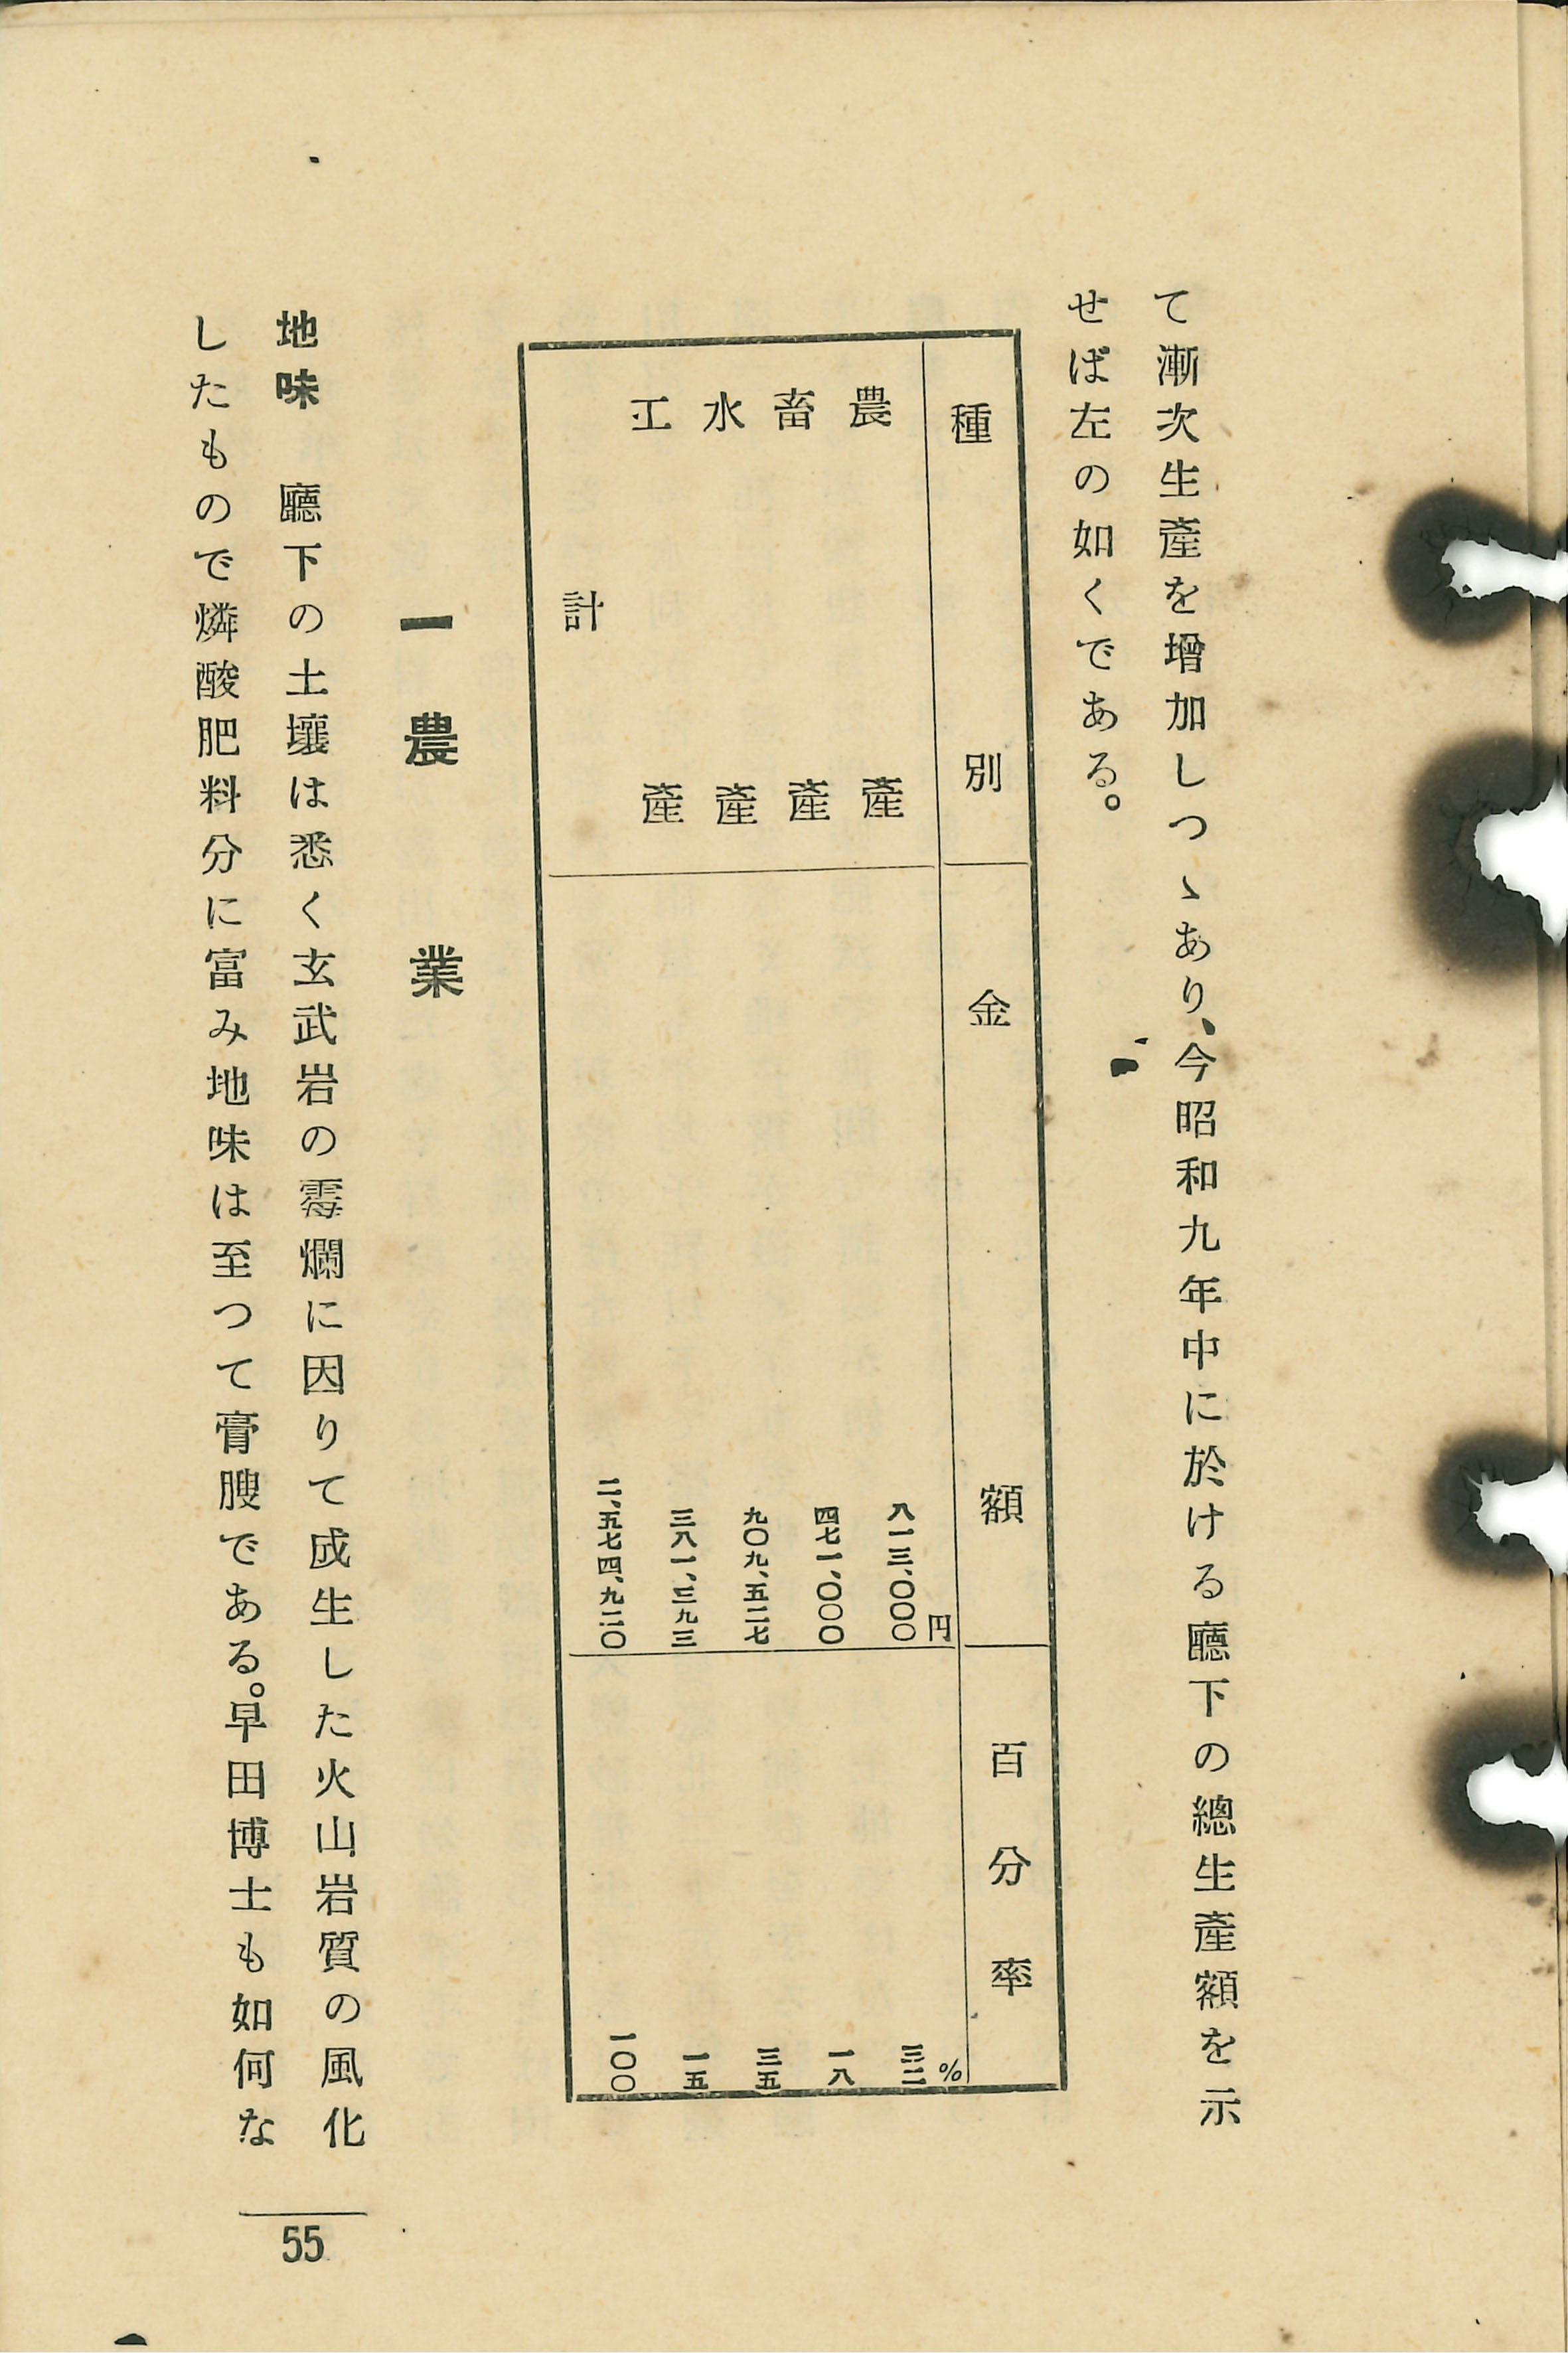 て漸次生產を增加しつゝあり、今昭和九年中に於ける廳下の總生產額を示
せば左の如くである。
種別 金額 百分率
円 %
農產 八一三、〇〇〇 三二
畜產 四七一、〇〇〇 一八
水產 九〇九、五二七 三五
工產 三八一、三九三 一五
計 二、五七四、九二〇 一〇〇
一 農業
地味 廳下の土壤は悉く玄武岩の霉爛に因りて成生した火山岩質の風化
したもので燐酸肥料分に富み地味は至つて膏膄である。早田博士も如何な
55